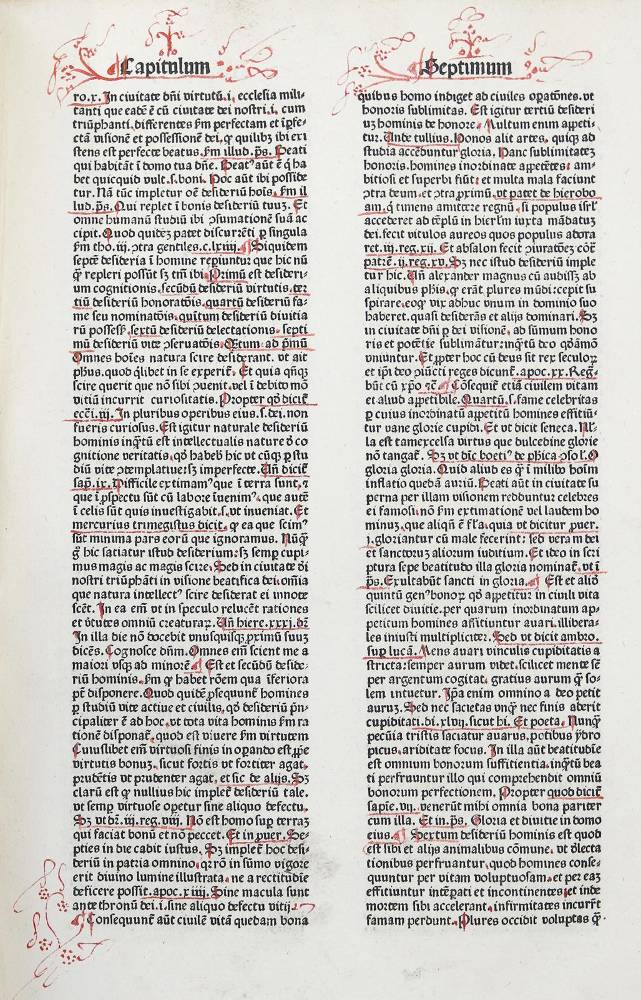 Capitulum
Septimum
ro.x. In ciuitate dñi virtutũ.i. ecclesia mili-
tanti que eadẽ ẽ cũ ciuitate dei nostri.i. cum
triũphanti, differentes s̃m perfectam et ĩpfe-
ctã visionẽ et possessionẽ dei, qr̃ quilibz ibi exi
stens est perfecte beatus. s̃m illud .p̃s. Beati
qui habitãt ĩ domo tua dñe. Beatꝰ aũt ẽ q̃ ha
bet quicquid vult.s.boni. Hoc aũt ibi posside
tur. Nã tũc impletur oẽ desideriũ hoĩs. s̃m il
lud.p̃s. Qui replet ĩ bonis desideriũ tuuz. Et
omne humanũ studiũ ibi ↄsumationẽ suã ac
cipit. Quod quidẽz patet discurrẽti ꝑ singula
s̃m tho.iij.ↄtra gentiles.c.lxiij. Siquidem
septẽ desideria ĩ homine reꝑiuntur: que hic nũ
qͣ repleri possũt sz tm̃ ibi. Primũ est desideri-
um cognitionis. secũdũ desideriũ virtutis. ter
tiũ desideriũ honoratiõis. quartũ desideriũ fa-
me seu nominatõis. quĩtum desideriũ diuitia
rũ possess̃. sextũ desideriũ delectationis. septi
mũ desideriũ vite ↄseruatõis. Q̃tum ad pͥmũ
Omnes hoĩes natura scire desiderant. vt ait
phus. quod q̃libet in se experit̃. Et quia qñqꝫ
scire querit que nõ sibi ↄuenit. vel ĩ debito mõ
vitiũ incurrit curiositatis. Propter qd̃ dicit̃
ecci.iij. In pluribus operibus eius.s.dei. non
fueris curiosus. Est igitur naturale desideriũ
hominis inqͣtũ est intellectualis nature ꝺe co
gnitione veritatis. qd̃ habet̃ hic vt cũqꝫ ꝑ stu
diũ vite ↄtemplatiue: sz imperfecte. Vñ dicit̃
sap̃.ix. Difficile extimamꝰ que ĩ terra sunt. ⁊
que ĩ ꝓspectu sũt cũ labore ĩuenimꝰ. que autẽ
ĩ celis sũt quis inuestigabit.s. vt inueniat. Et
mercurius trimegistus dicit. qͣ ea que scimꝰ
sũt minima pars eorũ que ignoramus. Nũqͣ
gͦ hic satiatur istud desideriũ: sz semꝑ cupi-
mus magis ac magis scire. Sed in ciuitate dĩ
nostri triũphãti in visione beatifica dei. om̃ia
que natura intellectꝰ scire desiderat ei innote
scẽt. In ea em̃ vt in speculo relucẽt rationes
et v̾tutes omniũ creaturaꝝ. Vñ hiere.xxxj. dr̃
In illa die nõ docebit vnusquisqꝫ ꝓximũ suũ
dicẽs. Cognosce dñm. Omnes em̃ scient me a
maiori vsqꝫ ad minorẽ. Est et secũdũ deside-
riũ hominis. s̃m qͣ habet rõem qua ĩferiora
põt disponere. Quod quidẽ ↄsequunt̃ homines
ꝑ studiũ vite actiue et ciuilis. qd̃ desideriũ pͥn-
cipaliter ẽ ad hoc. vt tota vita hominis s̃m ra
tionẽ disponat̃. quod est viuere s̃m virtutem
Cuiuslibet em̃ virtuosi finis in oꝑando est ꝓpͥe
virtutis bonuz. sicut fortis vt fortiter agat.
prudẽtis vt prudenter agat. et sic de alijs. Sz
clarũ est qͣ nullius hic implet̃ desideriũ tale.
vt semꝑ virtuose oꝑetur sine aliquo defectu.
Sz vt dr̃.iij.reg.viij. Nõ est homo suꝑ terraz
qui faciat bonũ et nõ peccet. Et in ꝓuer. Se-
pties in die cadit iustus. Sz implet̃ hoc desi-
deriũ in patria omnino. qr̃ rõ in sũmo vigore
erit diuino lumine illustrata. ne a rectitudine
deficere possit. apoc.xiiij. Sine macula sunt
ante thronũ dei.i. sine aliquo defectu vitij.
Consequunt̃ aũt ciuilẽ vitã quedam bona
quibus homo indiget ad ciuiles oꝑatões. vt
honoris sublimitas. Est igitur tertiũ desideri
uz hominis de honore. Multum enim appeti-
tur. Vnde tullius. Honos alit artes. quiqꝫ ad
studia accẽduntur gloria. Hanc sublimitatez
honoris. homines inordinate appetẽtes: am-
bitiosi et superbi fiũt: et multa mala faciunt
ↄtra deum et ↄtra ꝓximũ. vt patet de hierobo
am. qͥ timens amittere regnũ. si populus isrl̃
accederet ad tẽplũ in hierl̃m iuxta mãdatuz
dei. fecit vitulos aureos quos populus adora
ret.iij.reg.xij. Et absalon fecit ↄiuratõez cõt̃
patrẽ.ij.reg.xv. Sz nec istud desideriũ imple
tur hic. Vñ alexander magnus cũ audissz ab
aliquibus phis. qͣ erãt plures mũdi: cepit su
spirare. eo qͣ vix adhuc vnum in dominio suo
haberet. quasi desiderãs et alijs dominari. Sz
in ciuitate dñi ꝑ dei visionẽ. ad sũmum hono
ris et potẽtie sublimãtur: inqͣtũ deo qͦdãmõ
vniuntur. Et ꝓpter hoc cũ deus sit rex seculoꝝ
et ipͥ deo ↄiũcti reges dicunt̃. apoc.xx. Regna
bũt cũ xp̃o ⁊c̃. Cõsequit̃ etiã ciuilem vitam
et aliud appetibile. Quartũ.s.fame celebritas
ꝑ cuius inordinatũ appetitũ homines efficiũ-
tur vane glorie cupidi. Et vt dicit seneca. Nl̃-
la est tam excelsa virtus que dulcedine glorie
nõ tangat̃. Sz vt dic̃ boetiꝰ de phĩca ↄso.l. O
gloria gloria. Quid aliud es qͣ ĩ milibꝰ hoĩm
inflatio quedã auriũ. Beati aũt in ciuitate su
perna per illam visionem redduntur celebres
ei famosi. nõ s̃m extimationẽ vel laudem ho
minuz. que aliqñ ẽ fl̃a. quia vt dicitur ꝓuer.
j. gloriantur cũ male fecerint: sed vera m dei
et sanctoruz aliorum iuditium. Et ideo in scri
ptura sepe beatitudo illa gloria nominat̃. vt ĩ
p̃s. Exultabũt sancti in gloria. Est et aliud
quintũ genꝰ bonoꝝ qd̃ appetitur in ciuili vita
scilicet diuitie. per quarum inordinatum ap-
petitum homines afficiuntur auari. illibera-
les iniusti multipliciter. Sed vt dicit ambro.
suꝑ lucã. Mens auari vinculis cupiditatis a
stricta: semper aurum videt. scilicet mente sẽ
per argentum cogitat. gratius aurum qͣ so-
lem intuetur. Ip̃a enim omnino a deo petit
auruz. Sed nec sacietas vnqͣ nec finis aderit
cupiditati. di.xlvij. sicut hi. Et poeta. Nunqͣ
pecũia tristis saciatur auarus. potibus ydro
picus. ariditate focus. In illa aũt beatitudĩe
est omnium bonorum sufficientia. inqͣtũ bea
ti perfruuntur illo qui comprehendit omniũ
bonorum perfectionem. Propter quod dicit̃
sapĩe.vij. venerũt mihi omnia bona pariter
cum illa. Et in.p̃s. Gloria et diuitie in domo
eius. Sextum desideriũ hominis est quod
est sibi et alijs animalibus cõmune. vt dele̾cta
tionibus perfruantur. quod homines conse-
quuntur per vitam voluptuosam. et per eaz
efficiuntur intẽꝑati et incontinentes. et inde
mortem sibi accelerant. infirmitates incurrũt
famam perdunt. Plures occidit voluptas qͣ